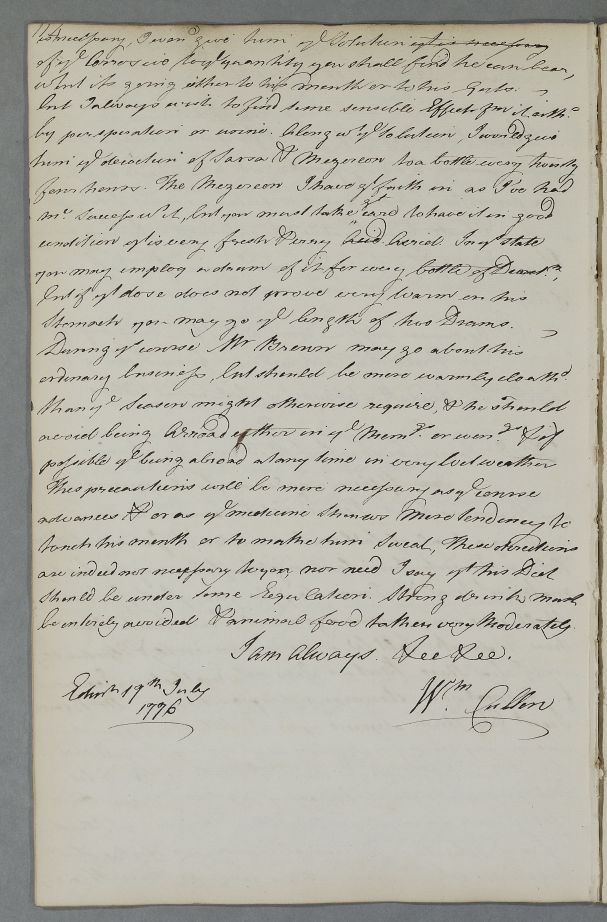 is necessary, I would give him ye Solution yt is necessary
of ye Corrosive to ye quantity you shall find he can bear,
without its going either to his mouth or to his Guts.
but I always wish to find some sensible Effect from it either
by perspiration or urine. Along wt ye Solution, I would give
him ye decoction of Sarsa & Mezereon to a bottle every twenty
four hours. The Mezereon I have yt faith in as I've had
mt Success wt it, but you must take care to have it in good
condition yt is very fresh & very Acrid. In yt state
you may employ a dram of it for every bottle of Decoctn,
but if yt dose does not prove very warm on his
Stomach you may go ye length of two Drams.
During ye course Mr Brown may go about his
ordinary business, but should be more warmly cloathd
than ye Season might otherwise require, & he should
avoid being abroad either in ye Morng or eveng & if
possible ye being abroad at any time in very bad weather
These precautions will be more necessary as ye course
advances & or as ye medicine Shews more tendency to
touch his mouth or to make him Sweat, These directions
are indeed not necessary to you, nor need I say yt his Diet
should be under some Regulation. Strong drinks must
be entirely avoided & animal food taken very Moderately.
I am always. &ce &ce.
Edinr 19th July
1776
Wm Cullen